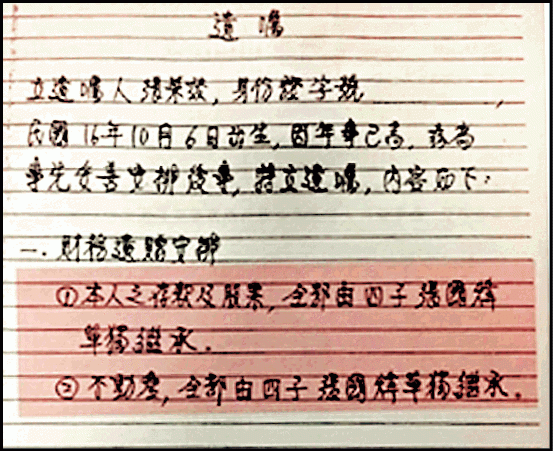 遺囑
立遺囑人張榮發,身份證字號
民國16年10月6日出生,因年事已高,茲為
事先妥善安排後事,特立遺囑,內容如下:
一.財務遺贈安排
①本人之存款及股票,全部由四子張國煒
單獨繼承.
②不動產,全部由四子張國煒單獨繼承.